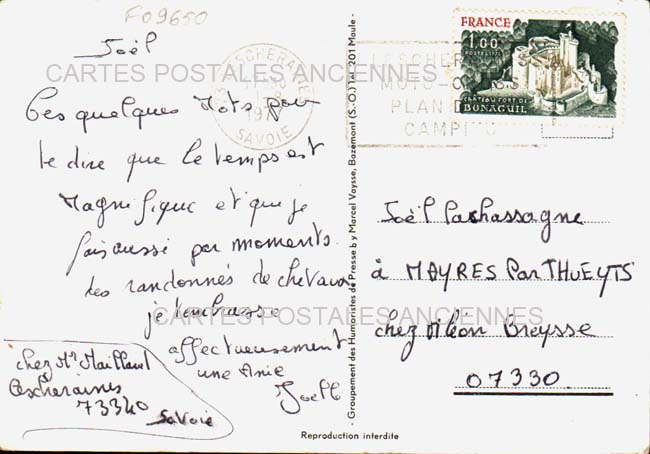 F09650
Joël
Ces quelques Mots pour
te dire que le temps est
Magnifique et que je
fais aussi par moments
des randonnés de chevaux
je t'embrasse
affectueusement
une Amie
Joelle
chez Mr Maillant
Escheraines
73340
Savoie
CARTES POSTALES ANCIENNES
CARTES POSTALES ANCIENNES
Reproduction interdite
- Groupement des Humoristes de Presse by Marcel Voysse, Bazemont (S.-O.) Tel. 201 Maule -
LESCHERAINES
MOTO-CROSS
PLAN D'
CAMPING
SAVOIE
FRANCE
1,00
POSTES 1976
CHATEAU FORT DE
BONAGUIL
Joël Pachassagne
à MAYRES Par THUEYTS
chez Mléon Breysse
07330.